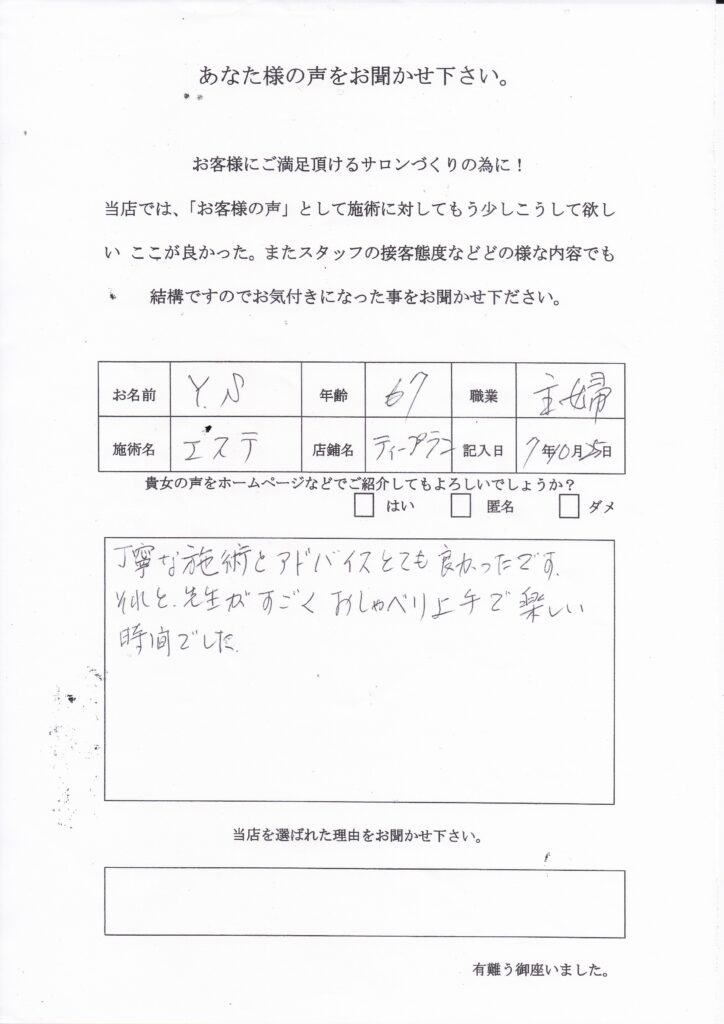 あなた様の声をお聞かせ下さい。
お客様にご満足頂けるサロンづくりの為に!
当店では、「お客様の声」として施術に対してもう少しこうして欲し
い ここが良かった。またスタッフの接客態度などどの様な内容でも
結構ですのでお気付きになった事をお聞かせ下ださい。
お名前 Y.N 年齢 67 職業 主婦
施術名 エステ 店鋪名 記入日 7年10月25日
貴女の声をホームページなどでご紹介してもよろしいでしょうか?
はい 匿名 ダメ
丁寧な施術とアドバイスとても良かったです。
それと、先生がすごくおしゃべり上手で楽しい
時間でした。
当店を選ばれた理由をお聞かせ下さい。
有難う御座いました。